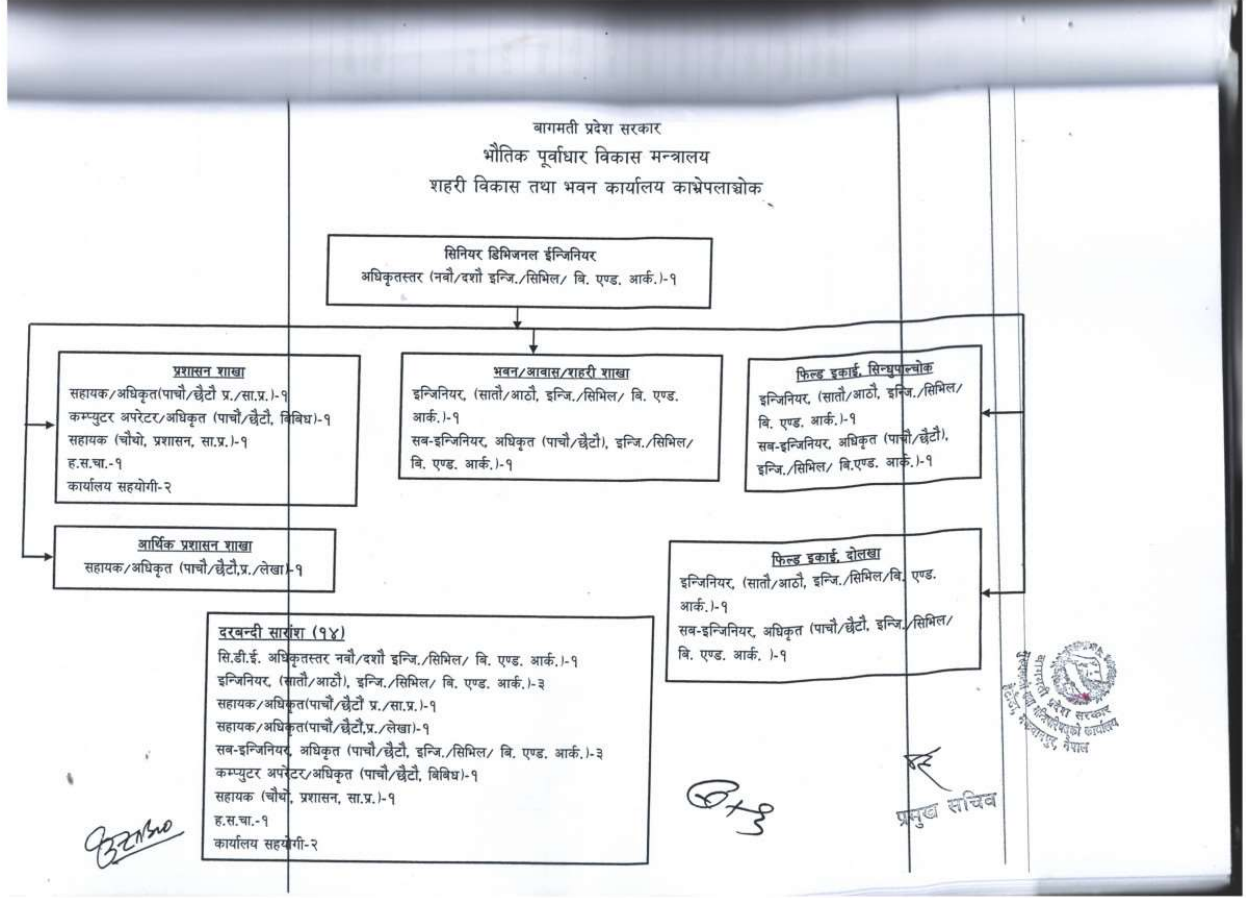 बागमती प्रदेश सरकार
भौतिक पूर्वाधार विकास मन्त्रालय
शहरी विकास तथा भवन कार्यालय काभ्रेपलाञ्चोक
सिनियर डिभिजनल ईन्जिनियर
अधिकृतस्तर (नवौ/दशौ इन्जि./सिभिल/ बि. एण्ड. आर्क.)-१
प्रशासन शाखा
सहायक/अधिकृत(पाचौ/छैटौ प्र./सा.प्र.)-१
कम्प्युटर अपरेटर/अधिकृत (पाचौ/छैटौ, बिबिध)-१
सहायक (चौथो, प्रशासन, सा.प्र.)-१
ह.स.चा.-१
कार्यालय सहयोगी-२
भवन/आवास/शहरी शाखा
इन्जिनियर, (सातौ/आठौ, इन्जि./सिभिल/ बि. एण्ड.
आर्क.)-१
सब-इन्जिनियर, अधिकृत (पाचौ/छैटौ), इन्जि./सिभिल/
बि. एण्ड. आर्क.)-१
फिल्ड इकाई, सिन्धुपाल्चोक
इन्जिनियर, (सातौ/आठौ, इन्जि./सिभिल/
बि. एण्ड. आर्क.)-१
सब-इन्जिनियर, अधिकृत (पाचौ/छैटौ),
इन्जि./सिभिल/ बि.एण्ड. आर्क.)-१
आर्थिक प्रशासन शाखा
सहायक/अधिकृत (पाचौ/छैटौ,प्र./लेखा)-१
फिल्ड इकाई, दोलखा
इन्जिनियर, (सातौ/आठौ, इन्जि./सिभिल/बि. एण्ड.
आर्क.)-१
सब-इन्जिनियर, अधिकृत (पाचौ/छैटौ, इन्जि./सिभिल/
बि. एण्ड. आर्क. )-१
दरबन्दी सारांश (१४)
सि.डी.ई. अधिकृतस्तर नवौ/दशौ इन्जि./सिभिल/ बि. एण्ड. आर्क.)-१
इन्जिनियर, (सातौ/आठौ), इन्जि./सिभिल/ बि. एण्ड. आर्क.)-३
सहायक/अधिकृत(पाचौ/छैटौ प्र./सा.प्र.)-१
सहायक/अधिकृत(पाचौ/छैटौ,प्र./लेखा)-१
सब-इन्जिनियर, अधिकृत (पाचौ/छैटौ, इन्जि./सिभिल/ बि. एण्ड. आर्क.)-३
कम्प्युटर अपरेटर/अधिकृत (पाचौ/छैटौ, बिबिध)-१
सहायक (चौथो, प्रशासन, सा.प्र.)-१
ह.स.चा.-१
कार्यालय सहयोगी-२
प्रमुख सचिव
बागमती प्रदेश सरकार
मुख्यमन्त्री तथा मन्त्रिपरिषद्को कार्यालय
हेटौंडा, मकवानपुर, नेपाल